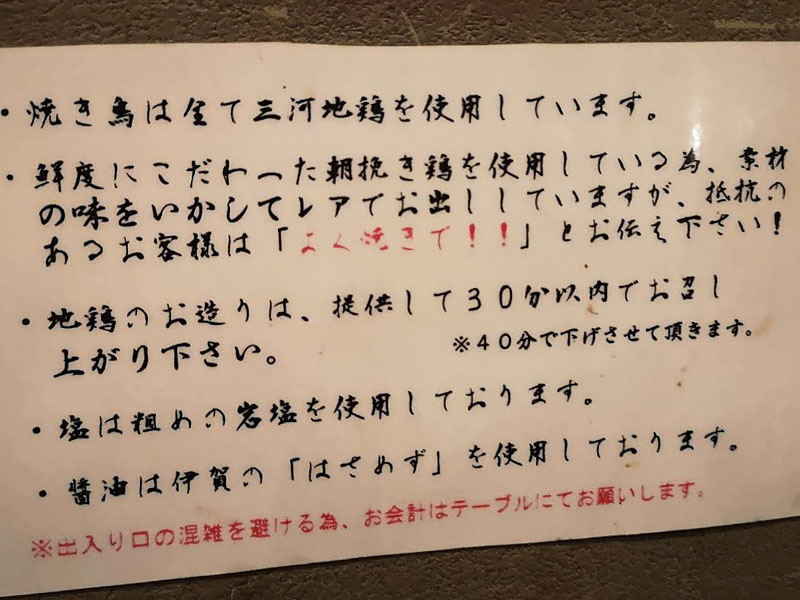 ・焼き鳥は全て三河地鶏を使用しています。
・鮮度にこだわった朝挽き鶏を使用している為、素材
の味をいかしてレアでお出ししていますが、抵抗の
あるお客様は「よく焼きで！！」とお伝え下さい！
・地鶏のお造りは、提供して30分以内でお召し
上がり下さい。 ※40分で下げさせて頂きます。
・塩は粗めの岩塩を使用しております。
・醤油は伊賀の「はさめず」を使用しております。
※出入り口の混雑を避ける為、お会計はテーブルにてお願いします。